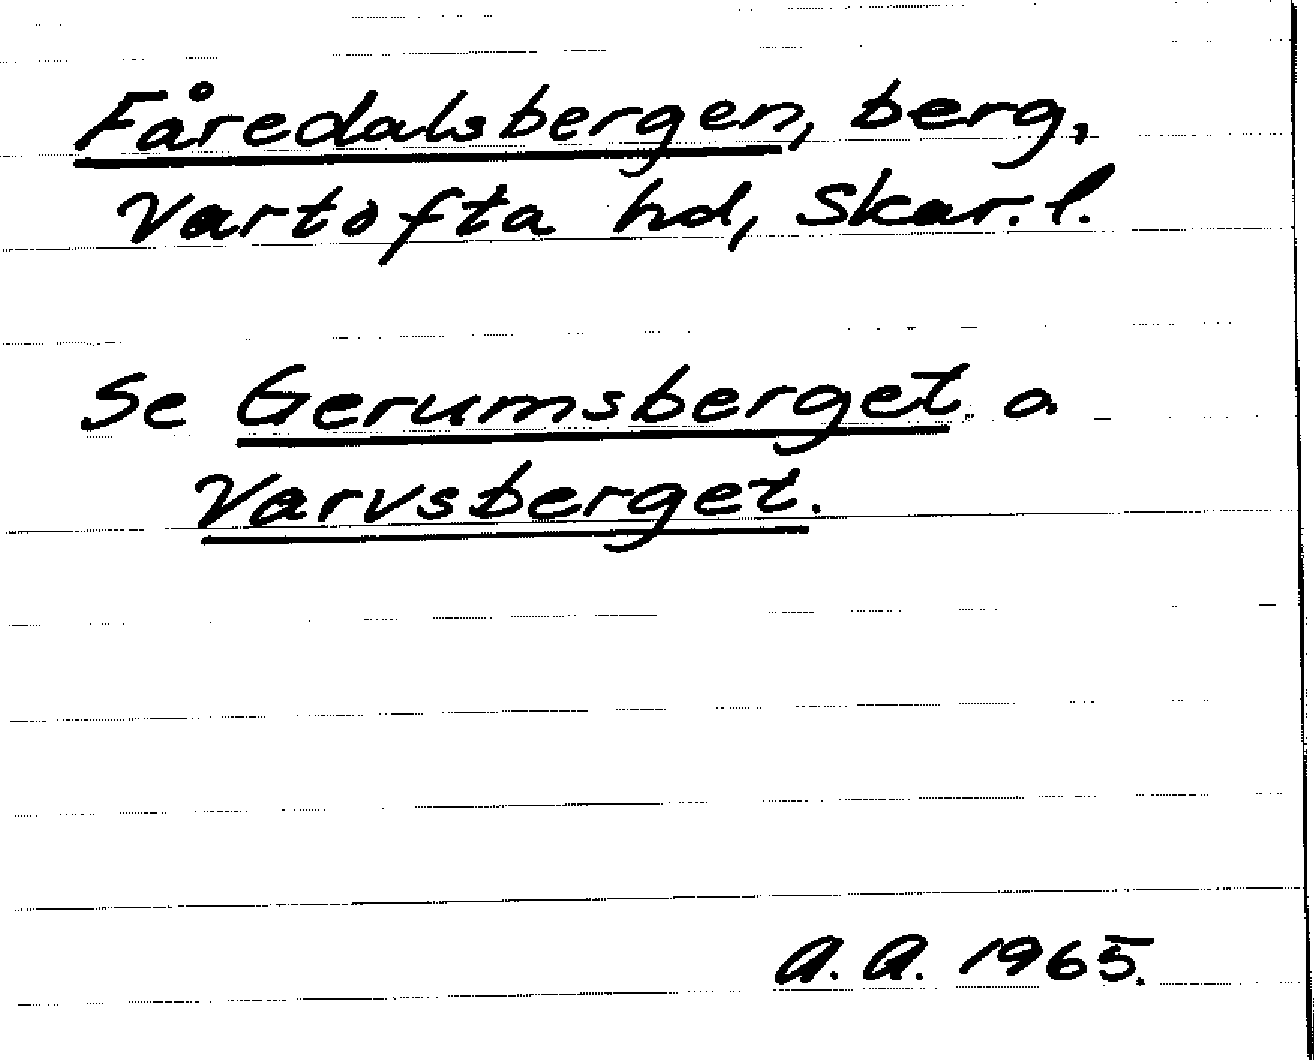 Fåredalsbergen, berg,
Vartofta hd, Skar. l.
Se Gerumsberget o
Varvsberget.
A. A. 1965.